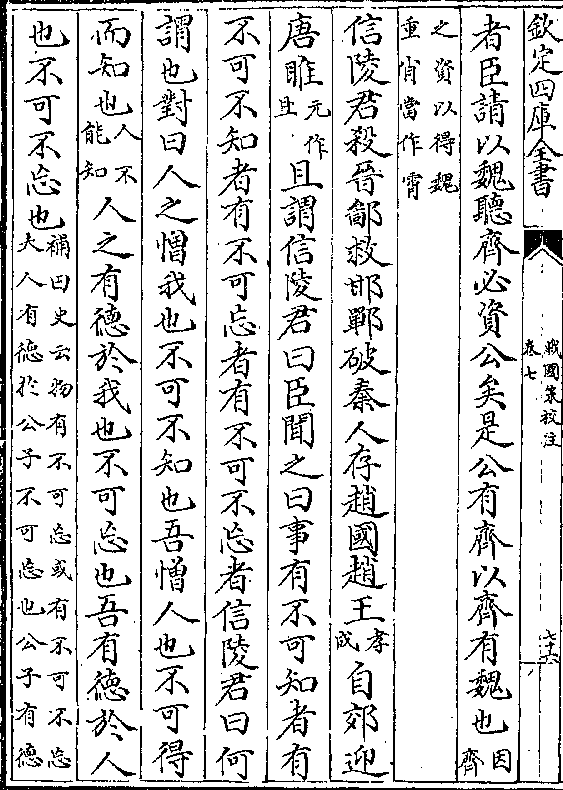 欽定四庫全書
戰國策校注
卷七
七十六
者臣請以魏聽齊必資公矣是公有齊以齊有魏也因齊
之資以得魏
重俏當作霄
信陵君殺晉鄙救邯鄲破秦人存趙國趙王孝成自郊迎
唐雎元作且且謂信陵君曰臣聞之曰事有不可知者有
不可不知者有不可忘者有不可不忘者信陵君曰何
謂也對曰人之憎我也不可不知也吾憎人也不可得
而知也人不能知人之有德於我也不可忘也吾有德於人
也不可不忘也補曰史云物有不可忘或有不可不忘夫人有德於公子不可忘也公子有德